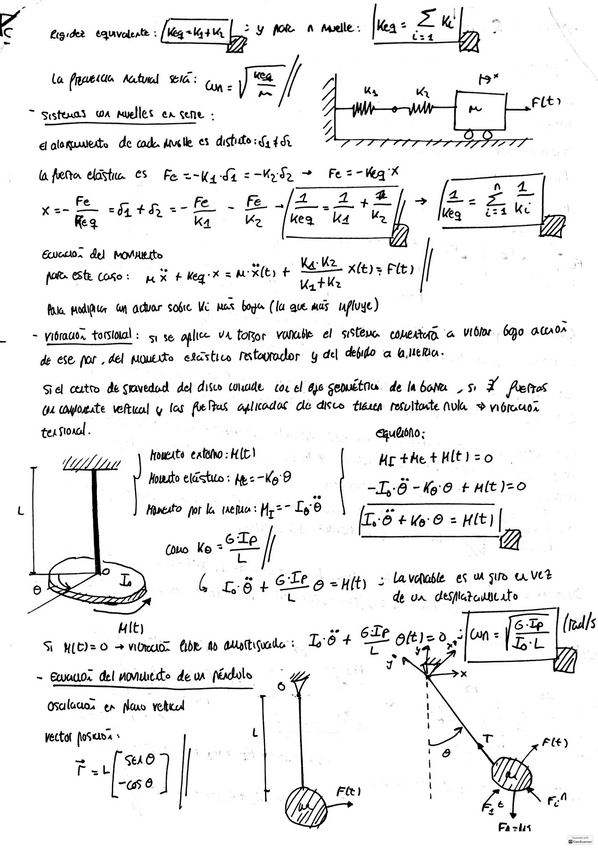 Rigidez equivalente: Keq = K1 + K2 ; y para n muelle: Keq = Σ(i=1)^n Ki
La frecuencia natural será: ωn = √(keq/m)
K1 K2 m x F(t)
- Sistemas con muelles en serie:
el alargamiento de cada muelle es distinto: δ1 ≠ δ2
la fuerza elástica es Fe = -K1·δ1 = -K2·δ2 → Fe = -Keq·x
x = - Fe/Keq = δ1 + δ2 = - Fe/K1 - Fe/K2 → 1/Keq = 1/K1 + 1/K2 → 1/Keq = Σ(i=1)^n 1/Ki
Ecuación del movimiento
para este caso: m ẍ + Keq·x = m·ẍ(t) + K1·K2/(K1+K2) x(t) = F(t)
Para modificar ωn actuar sobre Ki más baja (la que más influye)
- Vibración torsional: si se aplica un torsor variable el sistema comenzará a vibrar bajo acción
de ese par, del momento elástico restaurador y del debido a la inercia.
Si el centro de gravedad del disco coincide con el eje geométrico de la barra, si ∄ fuerzas
con componente vertical y las fuerzas aplicadas de disco tienen resultante nula → vibración
torsional.
equilibrio:
Momento externo: M(t)
Momento elástico: Me = -Kθ·θ
Momento por la inercia: MI = -I0·θ̈
MI + Me + M(t) = 0
-I0·θ̈ - Kθ·θ + M(t) = 0
I0·θ̈ + Kθ·θ = M(t)
L
θ O I0
M(t)
como Kθ = G·Ip/L
↳ I0·θ̈ + G·Ip/L θ = M(t) : La variable es un giro en vez
de un desplazamiento
Si M(t) = 0 → vibración libre no amortiguada: I0·θ̈ + G·Ip/L θ(t) = 0 ; ωn = √(G·Ip/(I0·L)) (rad/s
- Ecuación del movimiento de un péndulo
Oscilación en plano vertical
vector posición:
r⃗ = L [sen θ
-cos θ]
O
L
M F(t)
y x
θ T
M F(t)